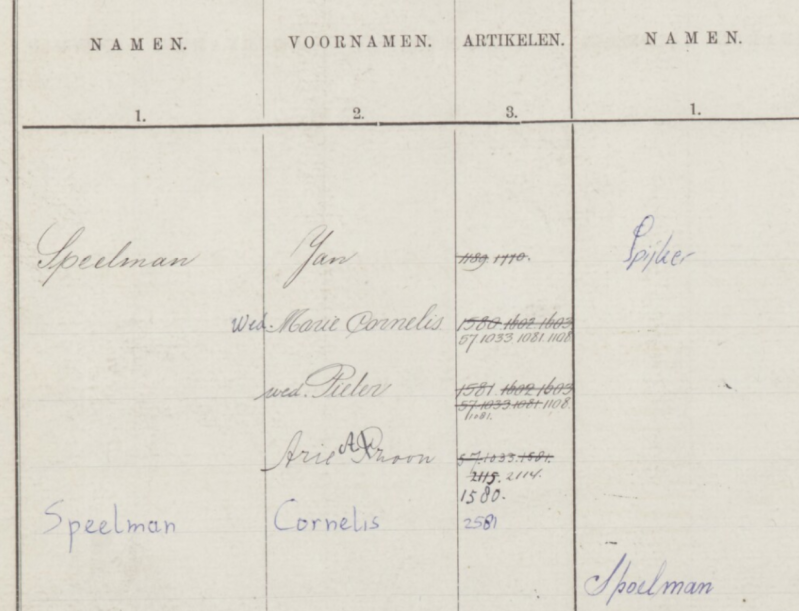 NAMEN. VOORNAMEN. ARTIKELEN. NAMEN.
1. 2. 3. 1.
Speelman Jan 1189 1770. Spijker
Wed. Marie Cornelis 1580 1602 1603
57 1033 1081 1108
wed. Pieter 1581 1602 1603
57 1033 1081 1108
1181.
Arie A
57. 1033. 1581.
2115. 2114.
1580.
Speelman Cornelis 2581
Spoelman